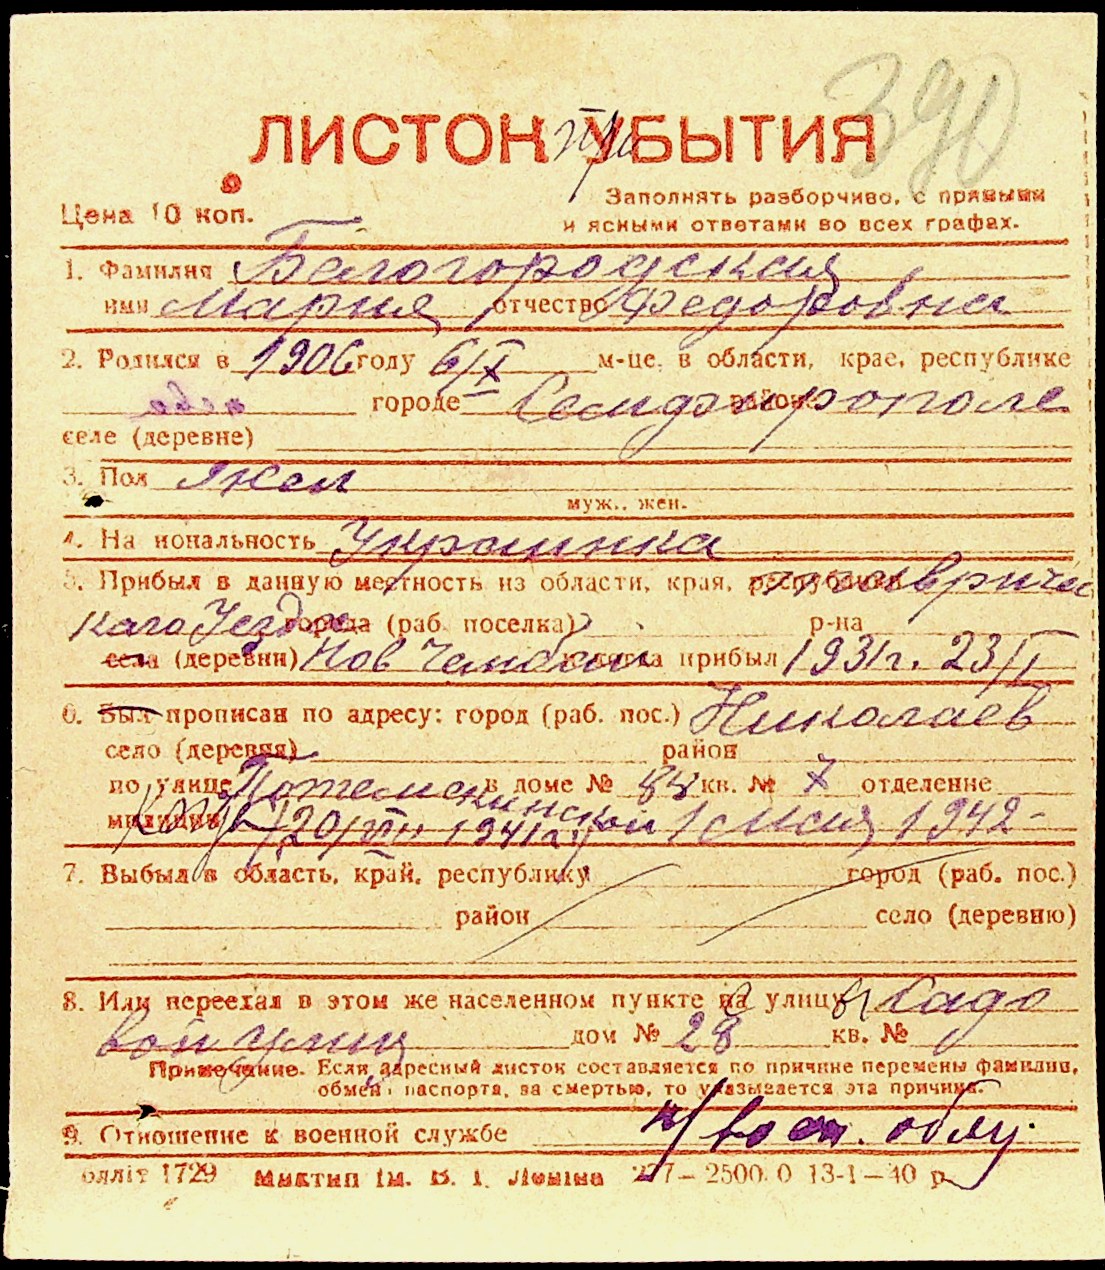 390
ЛИСТОК при УБЫТИЯ
Заполнять разборчиво, с прямыми
Цена 10 коп.
и ясными ответами во всех графах.
1. Фамилия Белогородская
имя Мария отчество Федоровна
2. Родился в 1906 году 6/X м-це, в области, крае, республике
городе Семдэирополе районе
селе (деревне)
3. Пол жен
муж., жен.
4. На иональность Украинка
5. Прибыл в данную местность из области, края, республики Тавричес
каго Уезда города (раб. поселка) р-на
села (деревни) Нов прибыл 1931 г. 23/II
6. Был прописан по адресу: город (раб. пос.) Николаев
село (деревня) район
по улице Потемкинской в доме № 88 кв. № 7 отделение
милиции 20/VIII 1941 г. 1 Мая 1942
7. Выбыл в область, край, республику город (раб. пос.)
район село (деревню)
8. Или переехал в этом же населенном пункте на улицу Садо
вой улиц дом № 28 кв. №
Примечание. Если адресный листок составляется по причине перемены фамилии,
обмен паспорта, за смертью, то указывается эта причина.
9. Отношение к военной службе н/воен. обяз.
Облліт 1729 Миктип ім. В. І. Леніна 227—2500.0 13-1—40 р.